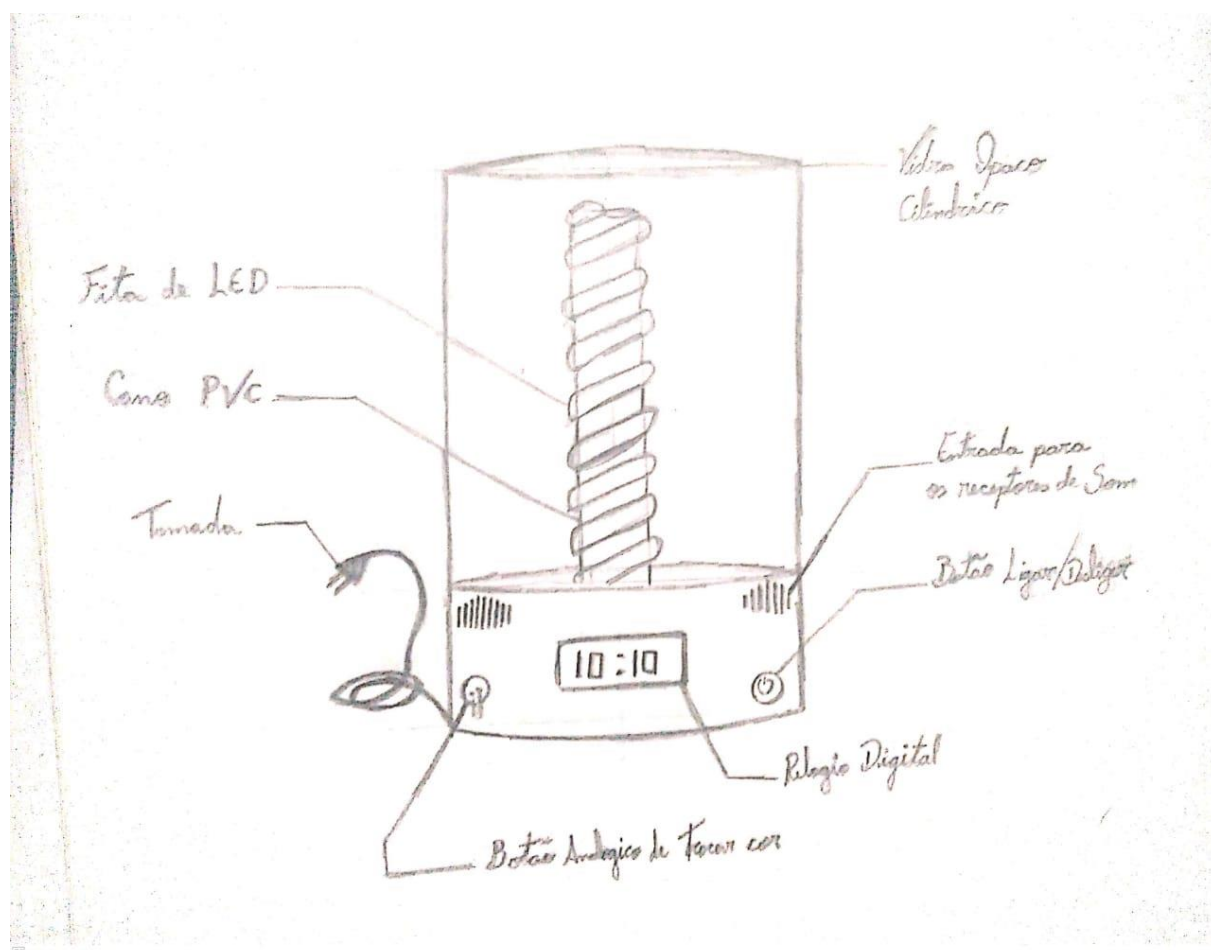 Vidro Opaco
Cilindrico
Fita de LED
Cano PVC
Entrada para
os receptores de Som
Tomada
Botão Ligar/Desligar
10:10
Relogio Digital
Botão Analogico de Trocar cor